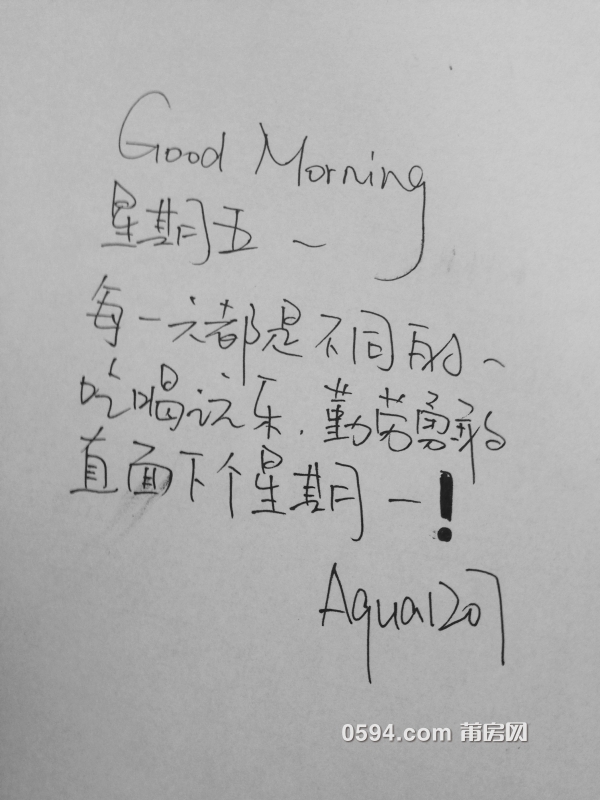 Good Morning
星期五~
每一天都是不同的、
吃喝玩乐、勤劳勇敢
直面下个星期一!
Aqua1207
0594.com 莆房网